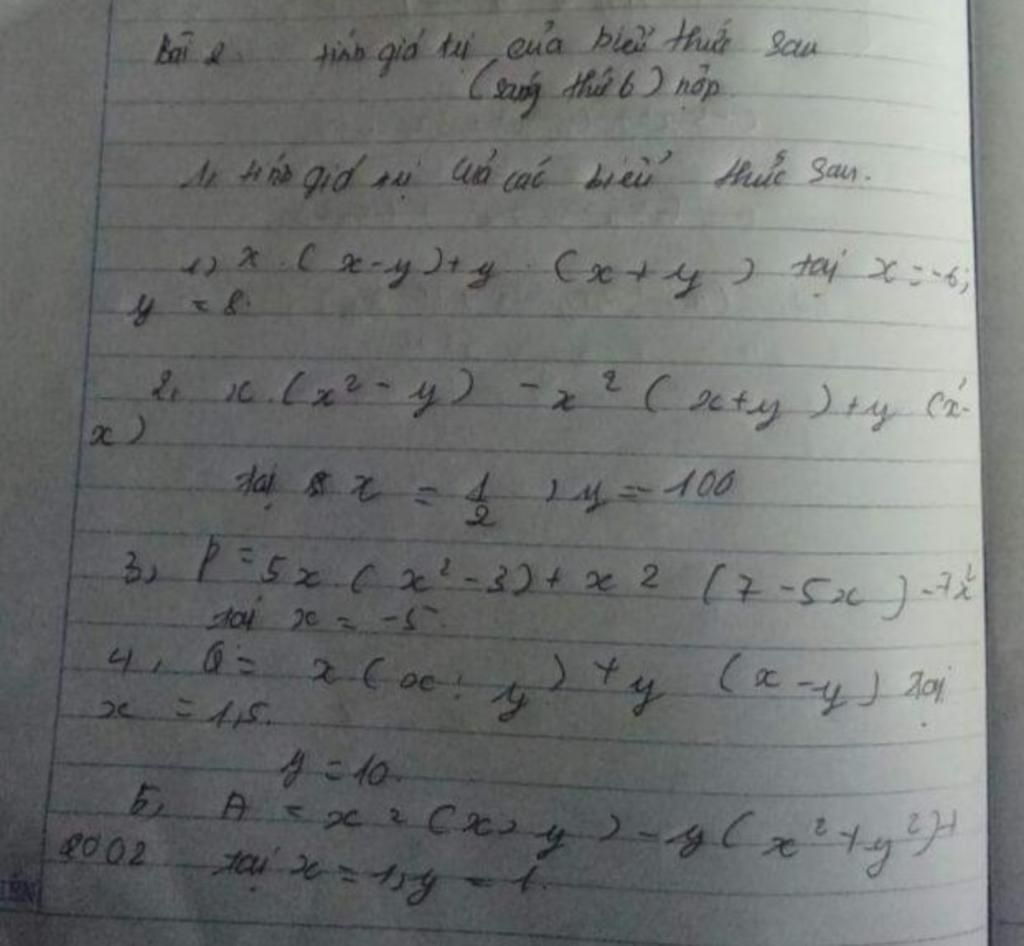 Bài 2. tính giá trị của biểu thức sau
(sáng thứ 6) nộp
1, tính giá trị của các biểu thức sau.
1) x. (x-y)+y (x+y) tại x=-6;
y = 8.
2, x.(x²-y) -x² (x+y)+y (x²-
x)
tại x = 1/2, y=-100
3, P=5x(x²-3)+x2 (7-5x)-7x²
tại x = -5.
4, Q= x(x y)+y (x-y) tại
x = 1,5.
y = 10.
5, A = x2(x y)-y(x²+y²)+
2002 tại x=1,y=1.